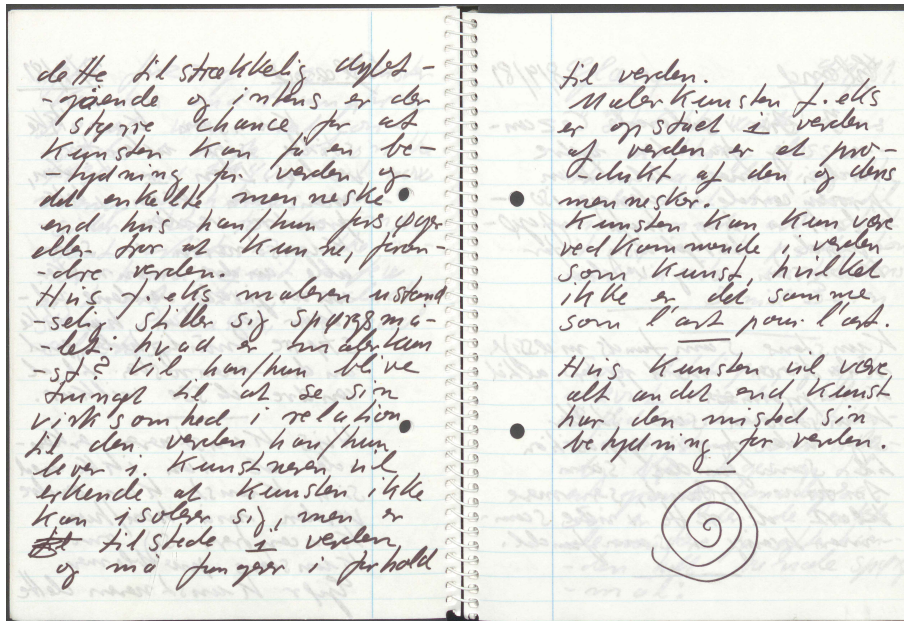 dette tilstrækkelig dybt-
-gående og intens er der
større chance for at
Kunsten kan få en be-
-tydning for verden og
det enkelte menneske
end hvis han/hun forsøger
eller tror at kunne, foran-
-dre verden.
Hvis f.eks maleren ustand
-selig stiller sig spørgsmå-
-let: hvad er malerkun
-st? vil han/hun blive
tvunget til at se sin
virksomhed i relation
til den verden han/hun
lever i. Kunstneren vil
erkende at kunsten ikke
kan isolerer sig, men er
tilstede i verden
og må fungerer i forhold
til verden.
Malerkunsten f.eks
er opstået i verden
af verden er et pro-
-dukt af den og dens
mennesker.
Kunsten kan kun være
vedkommende i verden
som kunst, hvilket
ikke er det samme
som l'art pour l'art.
Hvis kunsten vil være
alt andet end kunst
har den mistet sin
betydning for verden.